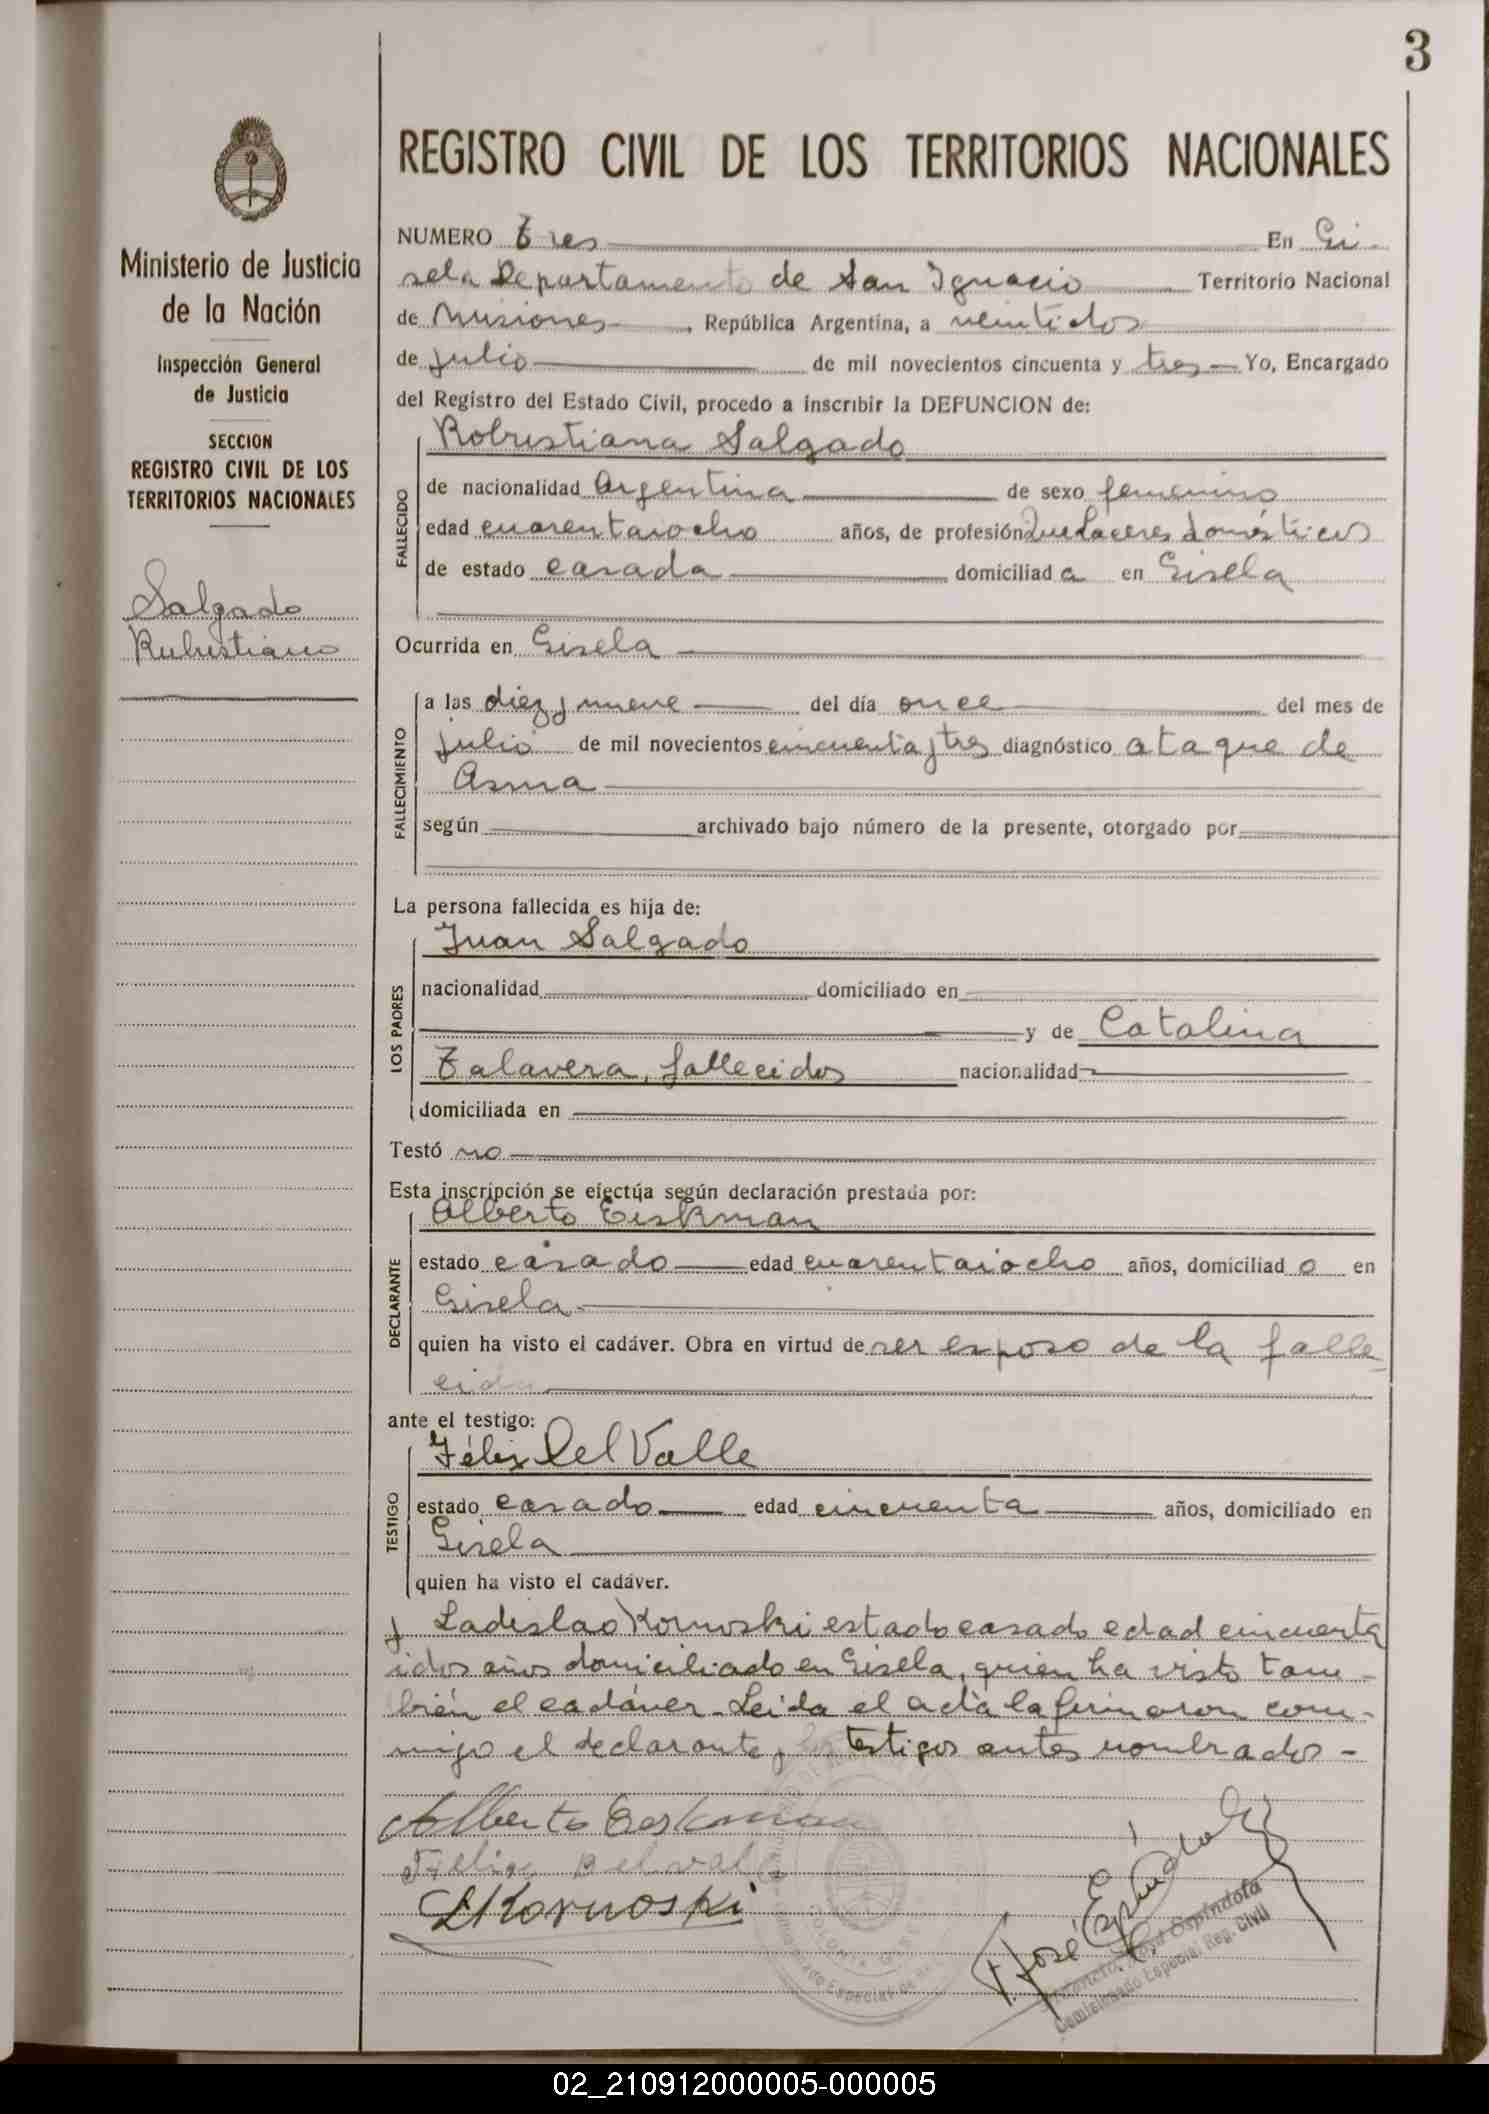 3
REGISTRO CIVIL DE LOS TERRITORIOS NACIONALES
Ministerio de Justicia
de la Nación
Inspección General
de Justicia
SECCION
REGISTRO CIVIL DE LOS
TERRITORIOS NACIONALES
Salgado
Rubustiano
NUMERO Tres En Gi
sela Departamento de San Ignacio Territorio Nacional
de Misiones, República Argentina, a veintidos
de julio de mil novecientos cincuenta y tres Yo, Encargado
del Registro del Estado Civil, procedo a inscribir la DEFUNCION de:
Robustiana Salgado
FALLECIDO
de nacionalidad Argentina de sexo femenino
edad cuarentaiocho años, de profesión Quehaceres domésticos
de estado casada domiciliada en Gisela
Ocurrida en Gisela
FALLECIMIENTO
a las diez y nueve del día once del mes de
julio de mil novecientos cincuenta y tres diagnóstico ataque de
Asma
según archivado bajo número de la presente, otorgado por
La persona fallecida es hija de:
LOS PADRES
Juan Salgado
nacionalidad domiciliado en
y de Catalina
Talavera, fallecidos nacionalidad
domiciliada en
Testó no
Esta inscripción se efectúa según declaración prestada por:
DECLARANTE
Alberto Eiskman
estado casado edad cuarentaiocho años, domiciliado en
Gisela
quien ha visto el cadáver. Obra en virtud de ser esposo de la falle
cida
ante el testigo:
TESTIGO
Félix Del Valle
estado casado edad cincuenta años, domiciliado en
Gisela
quien ha visto el cadáver.
y Ladislao Kornoski estado casado edad cincuenta
idos años domiciliado en Gisela, quien ha visto tam-
bién el cadáver. Leida el acta la firmaron con-
migo el declarante y los testigos antes nombrados -
Alberto
Felix Delvalle
LKornoski
José Espíndola
José Espíndola
Comisionado Especial Reg. Civil
02_210912000005-000005